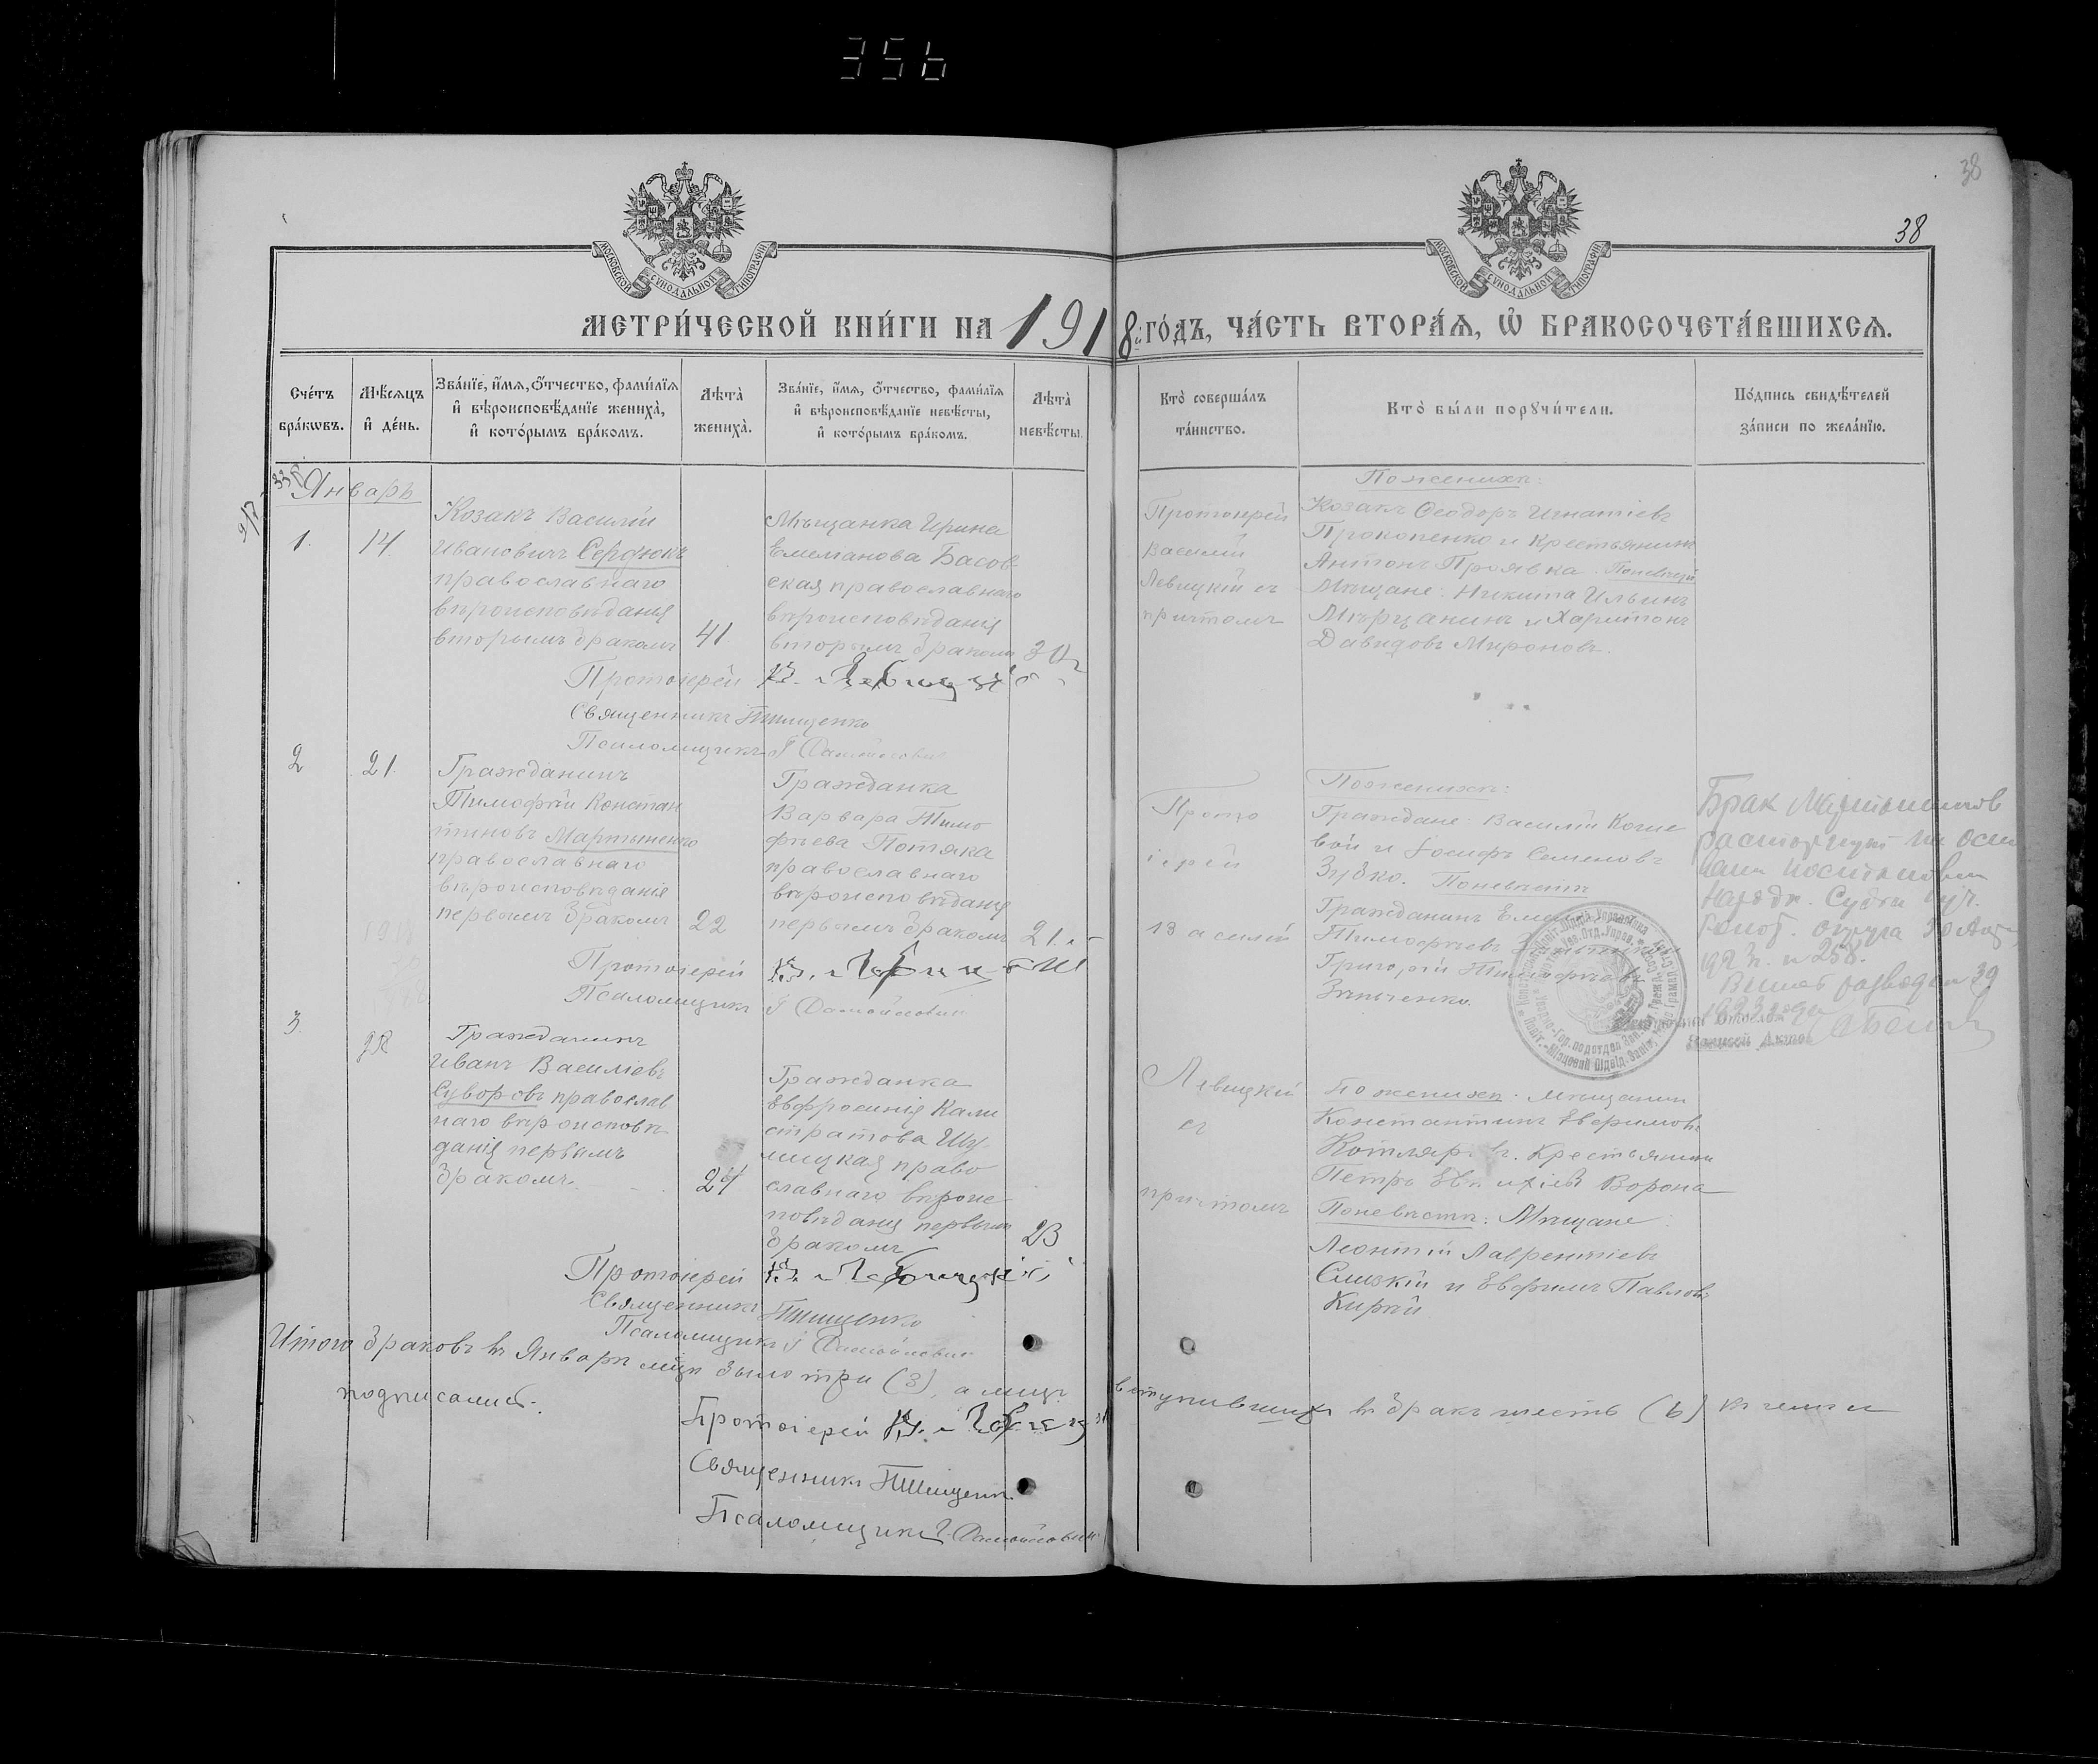 356
38
38
МОСКОВСКОЙ СѴНОДАЛЬНОЙ ТИПОГРАФІИ
МОСКОВСКОЙ СѴНОДАЛЬНОЙ ТИПОГРАФІИ
МЕТРИ́ЧЕСКОЙ КНИ́ГИ НА 1918й ГО́ДЪ, ЧА́СТЬ ВТОРА́Ѧ, Ѽ БРАКОСОЧЕТА́ВШИХСѦ.
Сче́тъ бра́кѡвъ.
Мѣ́сѧцъ и҆ де́нь.
Зва́нїе, и҆́мѧ, ѻ҆́тчество, фами́лїѧ
и҆ вѣроисповѣ́данїе жениха̀,
и҆ кото́рымъ бра́комъ.
Лѣта̀ жениха̀.
Зва́нїе, и҆́мѧ, ѻ҆́тчество, фами́лїѧ
и҆ вѣроисповѣ́данїе невѣ́сты,
и҆ кото́рымъ бра́комъ.
Лѣта̀ невѣ́сты.
Кто̀ соверша́лъ та́инство.
Кто̀ бы́ли порꙋчи́тели.
По́дпись свидѣ́телей
за́писи по жела́нїю.
Январь
1.
14.
Козакъ Василій
Ивановичъ Сердюкъ
православнаго
вѣроисповѣданія
вторымъ бракомъ
41.
Мѣщанка Ирина
Емеліанова Басов
ская православнаго
вѣроисповѣданія
вторымъ бракомъ
Протоіерей
Василій
Левицкій съ
причтомъ
По женихѣ:
Козакъ Ѳеодоръ Игнатіевъ
Прокопенко и крестьянинъ
Антонъ Проявка. По невѣстѣ
Мѣщане: Никита Ильинъ
Мѣрцанинъ и Харитонъ
Давидовъ Мироновъ.
Протоіерей В. Левицкій
Священникъ Тищенко
Псаломщикъ
2
21.
Гражданинъ
Тимофей Констан
тиновъ Мартыненко
православнаго
вѣроисповѣданія
первымъ бракомъ
22
Гражданка
Варвара Тимо
фѣева Потяка
православнаго
вѣроисповѣданія
первымъ бракомъ
21.
Прото
іерей
Василій
По женихѣ:
Граждане: Василій Коше
вой и Іосифъ Семеновъ
Зубко. По невѣстѣ
Гражданинъ
Тимофѣевъ
Григорій Тимофѣевъ
Зѣнченко.
Брак
расторгнут на осн
Народн. Судьи
округа
192 г. 258.
39
1923 года
Протоіерей В. Левицкій
Псаломщикъ
3
28
Гражданинъ
Иванъ Василіевъ
Суворовъ православ
наго вѣроисповѣ
данія первымъ
бракомъ.
24
Гражданка
Евфросинія Кали
стратова Шу
мицкая право
славнаго вѣроис
повѣданія первымъ
бракомъ
23
Левицкій
съ
причтомъ
По женихѣ: Мѣщанинъ
Константинъ Ефримовъ
Котляръ и крестьянинъ
Петръ Ворона
По невѣстѣ: Мѣщане
Леонтій Лаврентіевъ
Слизкій и Евфимъ Павловъ
Кирѣй
Протоіерей В. Левицкій
Священникъ Тищенко
Псаломщикъ
Итого браковъ въ Январѣ мцѣ было три (3), а лицъ вступившихъ въ бракъ шесть (6) въ чемъ и
подписались:
Протоіерей В. Левицкій
Священникъ Тищенко
Псаломщикъ